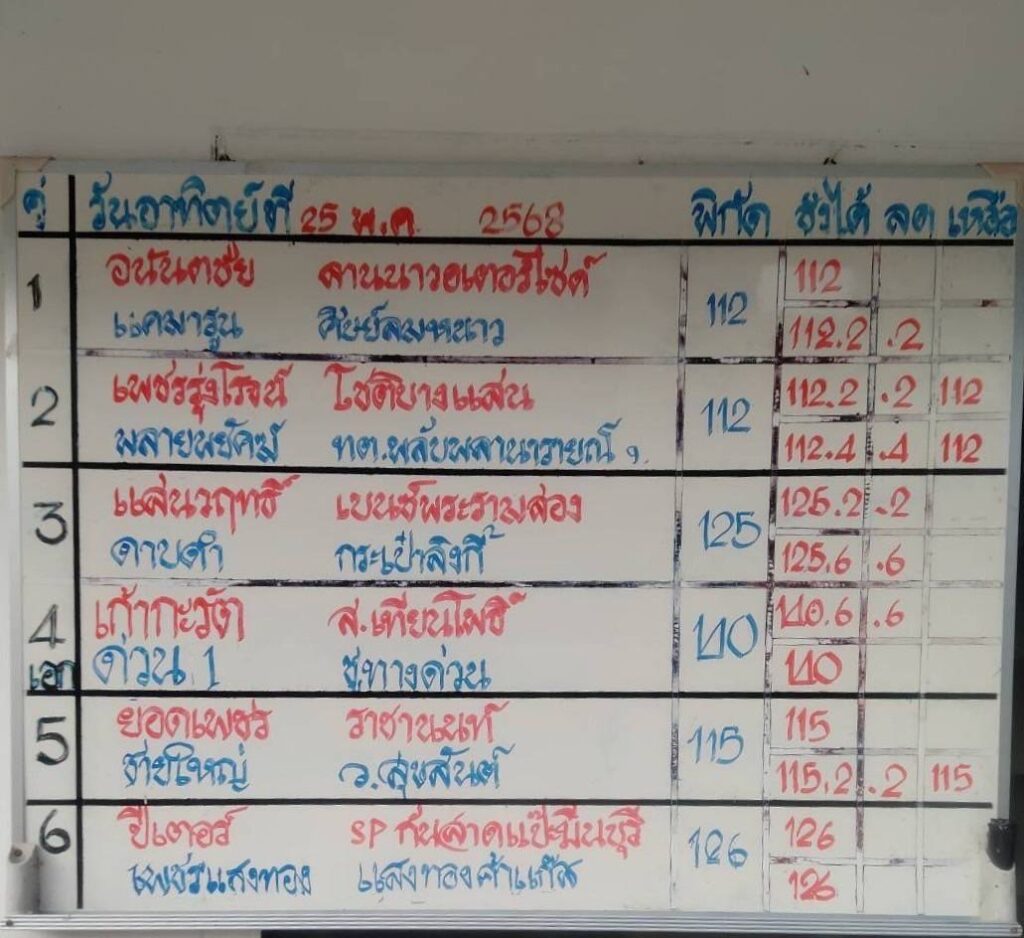 คู่ วันอาทิตย์ที่ 25 พ.ค. 2568 พิกัด ชั่งได้ ลด เหลือ
1 อนันตชัย ลานนาวอเตอร์ไซด์ 112 112
แคมารูน ศิษย์ลมหนาว 112.2 .2
2 เพชรรุ่งโรจน์ โชติบางแสน 112 112.2 .2 112
พลายพยัคฆ์ ทต.พลับพลานารายณ์ 112.4 .4 112
3 แสนวฤทธิ์ เบนซ์พระรามสอง 125 125.2 .2
ดาบดำ กระเป๋าลิงกี้ 125.6 .6
4 เก้ากะรัต ส.เทียนโพธิ์ ปอ.6 .6
เอก ด่วน.1 ซุ้ทางด่วน
5 ยอดเพชร ราชานนท์ 115 115
ชายใหญ่ ว.สุขสันต์ 115.2 .2 115
6 ปีเตอร์ SP กันสาดแป๊ะมีนบุรี 126 126
เพชรแสงทอง แสงทองค้าแก๊ส 126